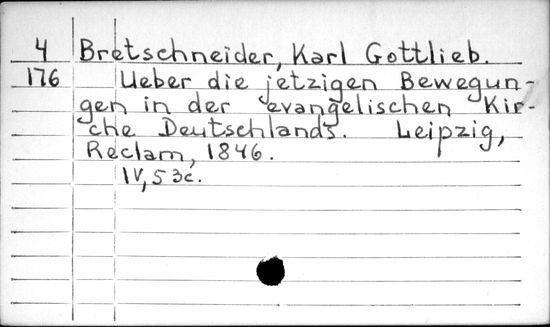 4 Bretschneider, Karl Gottlieb.
176 Ueber die jetzigen Bewegun-
gen in der evangelischen Kir-
che Deutschlands. Leipzig,
Reclam, 1846.
IV, 53c.